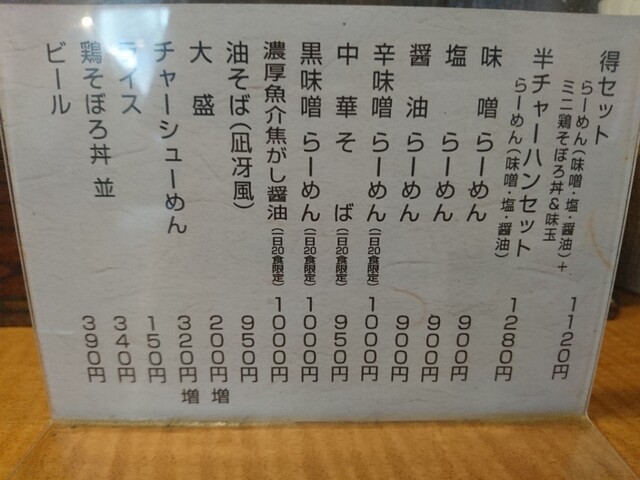 得セット
らーめん(味噌・塩・醤油)+
ミニ鶏そぼろ丼&味玉 1120円
半チャーハンセット
らーめん(味噌・塩・醤油) 1280円
味噌らーめん 900円
塩らーめん 900円
醤油らーめん 900円
辛味噌らーめん(一日20食限定) 1000円
中華そば(一日20食限定) 950円
黒味噌らーめん(一日20食限定) 1000円
濃厚魚介焦がし醤油(一日20食限定) 1000円
油そば(凪冴風) 950円
大盛 200円増
チャーシューめん 320円増
ライス 150円
鶏そぼろ丼 並 340円
ビール 390円